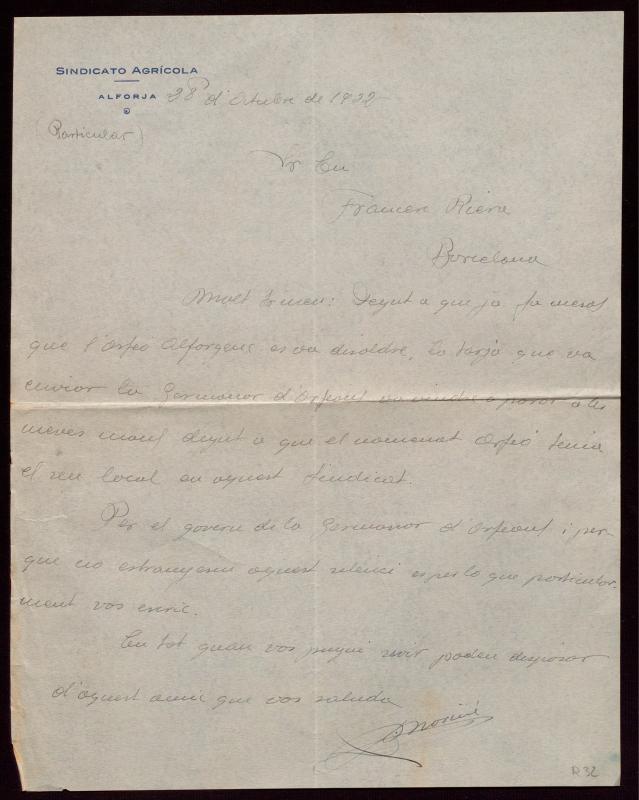 SINDICATO AGRÍCOLA
ALFORJA
28 d'Octubre de 1922
(Particular)
Sr En
Francesc Riera
Barcelona
Molt Senyor: Degut a que ja fa mesos
que l'Orfeó Alforgenc es va disoldre, la tarja que va
enviar la Germanor d'Orfeons va vindre a parar a les
meves mans degut a que el nomenat Orfeó tenia
el seu local en aquest Sindicat.
Per el govern de la Germanor d'Orfeons i per-
que no estranyessin aquest silenci es per lo que particular-
ment vos escric.
En tot quan vos pugui servir poden disposar
d'aquest amic que vos saluda
R 32